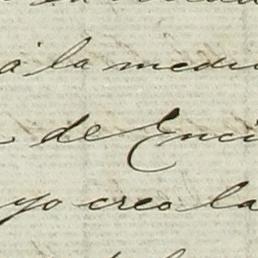 a la medi
de Enci
yo creo la